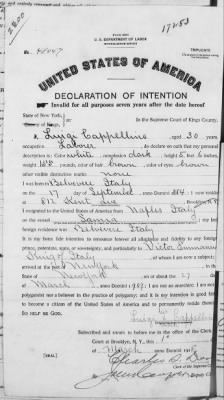 17253
U. S. DEPARTMENT OF LABOR
NATURALIZATION SERVICE
TRIPLICATE
No.
UNITED STATES OF AMERICA
DECLARATION OF INTENTION
Invalid for all purposes seven years after the date hereof
State of New York,
County of Kings, ss:
In the Supreme Court of Kings County.
I, Luigi Cappellino, aged 30 years,
occupation Laborer, do declare on oath that my personal
description is: Color white, complexion dark, height 5 feet 6 inches,
weight pounds, color of hair brown, color of eyes brown
other visible distinctive marks none
I was born in Belvere Italy
on the 17 day of September, anno Domini 1884; I now reside
at 812 Kent Ave Brooklyn, N.Y.
I emigrated to the United States of America from Naples Italy
on the vessel; my last
foreign residence was Belvere Italy
It is my bona fide intention to renounce forever all allegiance and fidelity to any foreign
prince, potentate, state, or sovereignty, and particularly to Victor Emmanuel
King of Italy, of whom I am now a subject;
arrived at the port of New York, in the
State of New York, on or about the 27 day
of March, anno Domini; I am not an anarchist; I am not a
polygamist nor a believer in the practice of polygamy; and it is my intention in good faith
to become a citizen of the United States of America and to permanently reside therein:
SO HELP ME GOD.
Luigi Cappellino
Subscribed and sworn to before me in the office of the Clerk of
Court at Brooklyn, N. Y., this
day of March, anno Domini
[SEAL]
Charles S.
Clerk of the Supreme Court.
By Deputy Clerk.